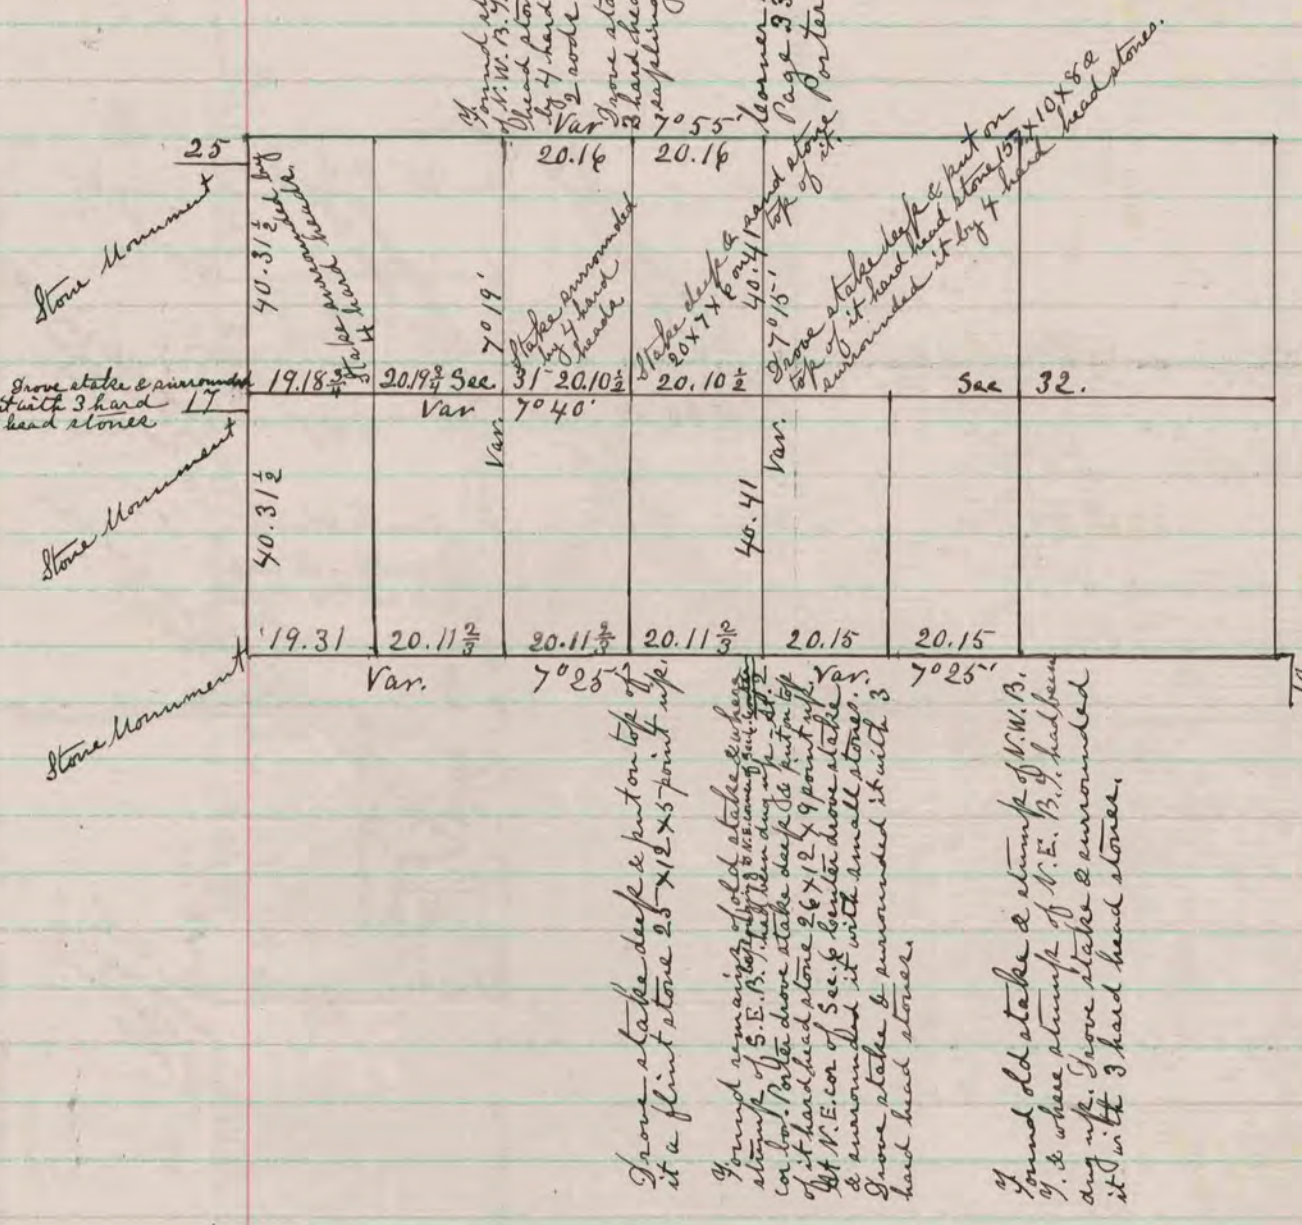 Found
of N.W. B.T.
head ston
by 4 hard
2 rods
Drove sta
3 hard hea
sapling
Corner
Page 23
Porter
Var 7° 55'
25
20.16
20.16
Stone Monument
40.31½
Stake surrounded by
4 hard heads.
7° 19'
Stake surrounded
by 4 hard
heads
Stake deep &
20 X 7 X 8 on
top of it.
40.41
7° 15'
Drove stake deep & put on
top of it hard head stone 15 X 10 X 8 &
surrounded it by 4 hard head stones.
Drove stake & surrounded
it with 3 hard
head stones
17
19.18¾
20.19¾ Sec
31 20.10½
20.10½
Sec 32.
Var 7° 40'
Var.
Var.
Stone Monument
40.31½
40.41
19.31
20.11⅔
20.11⅔
20.11⅔
20.15
20.15
Stone Monument
Var. 7° 25'
Var. 7° 25'
Drove stake deep & put on top of
it a flint stone 25 X 12 X 5 point up.
Found remains of old stake & where
stump of S.E. B.T. had been dug up
cor bo. Porter drove stake deep & put on top
of it hard head stone 26 X 12 X 9 point up.
At N.E. cor of Sec. 6 Center drove stake
& surrounded it with small stones.
Drove stake & surrounded it with 3
hard head stones.
Found old stake & stump of N.W. B.
T. & where stump of N.E. B.T. had been
dug up. Drove stake & surrounded
it with 3 hard head stones.